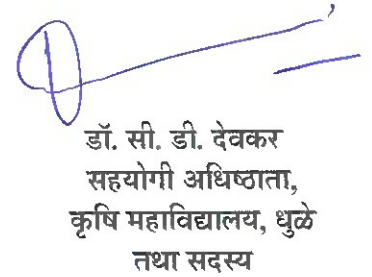 डॉ. सी. डी. देवकर
सहयोगी अधिष्ठाता,
कृषि महाविद्यालय, धुळे
तथा सदस्य